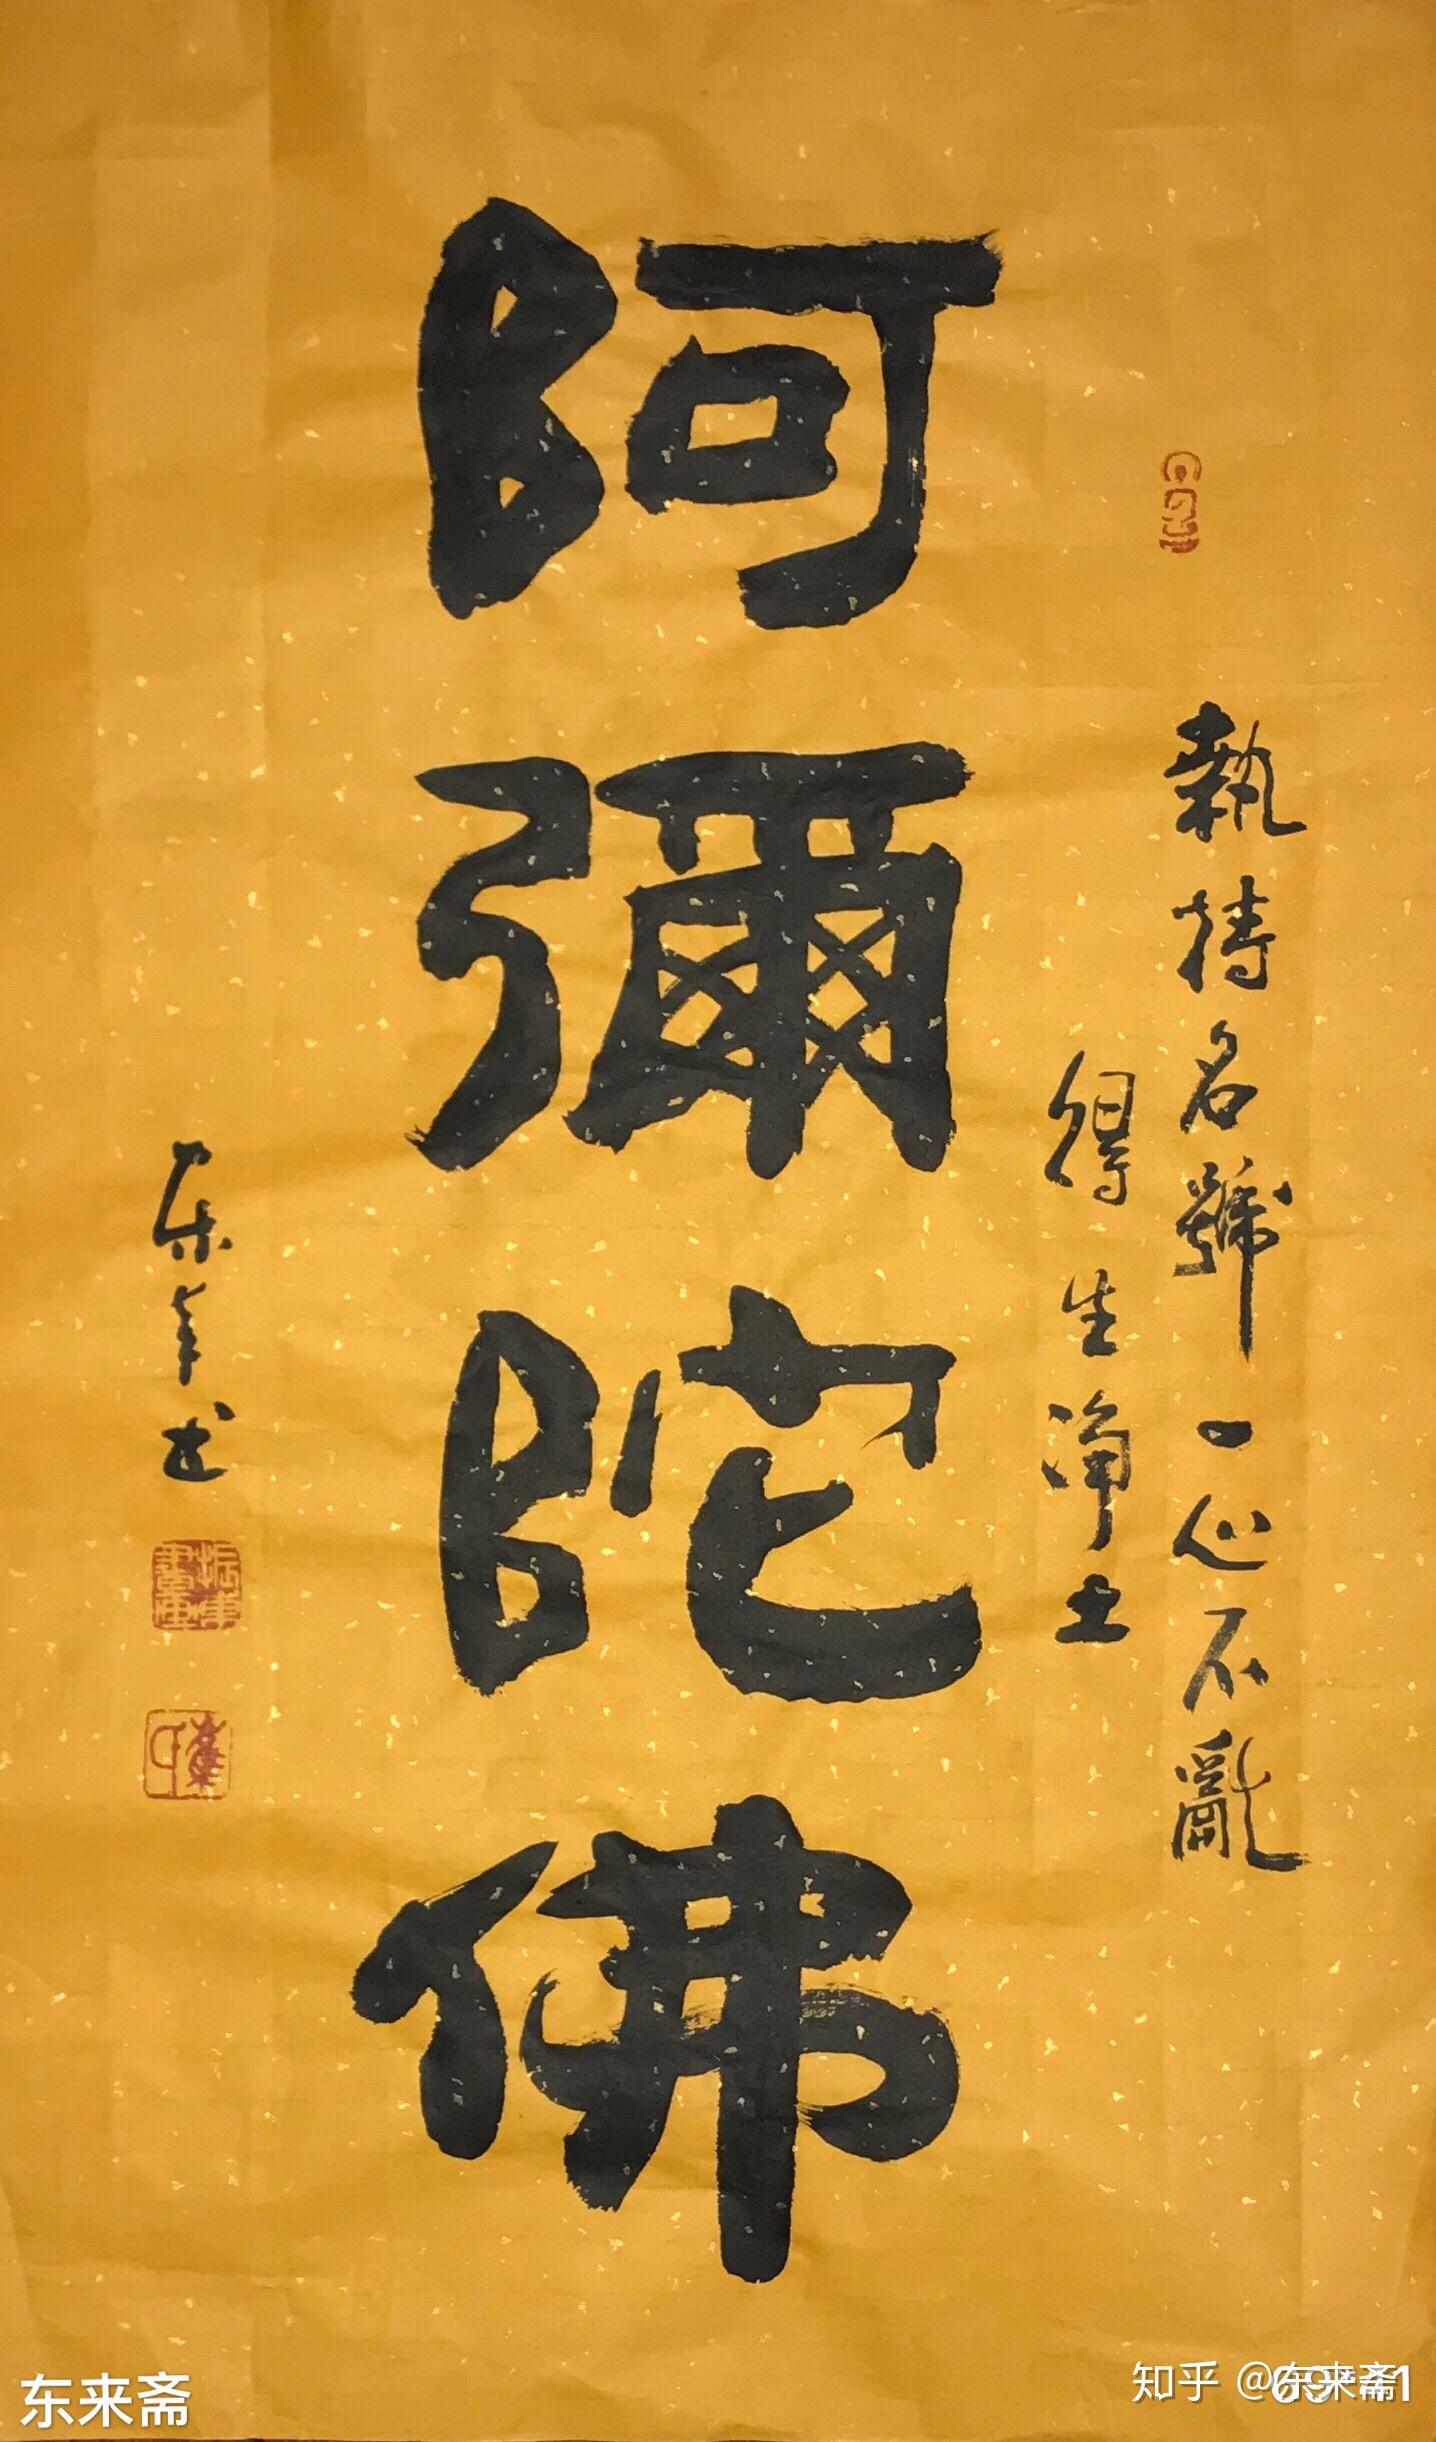 執持名號一心不亂
得生淨土
阿彌陀佛
东来斋
知乎 @东来斋